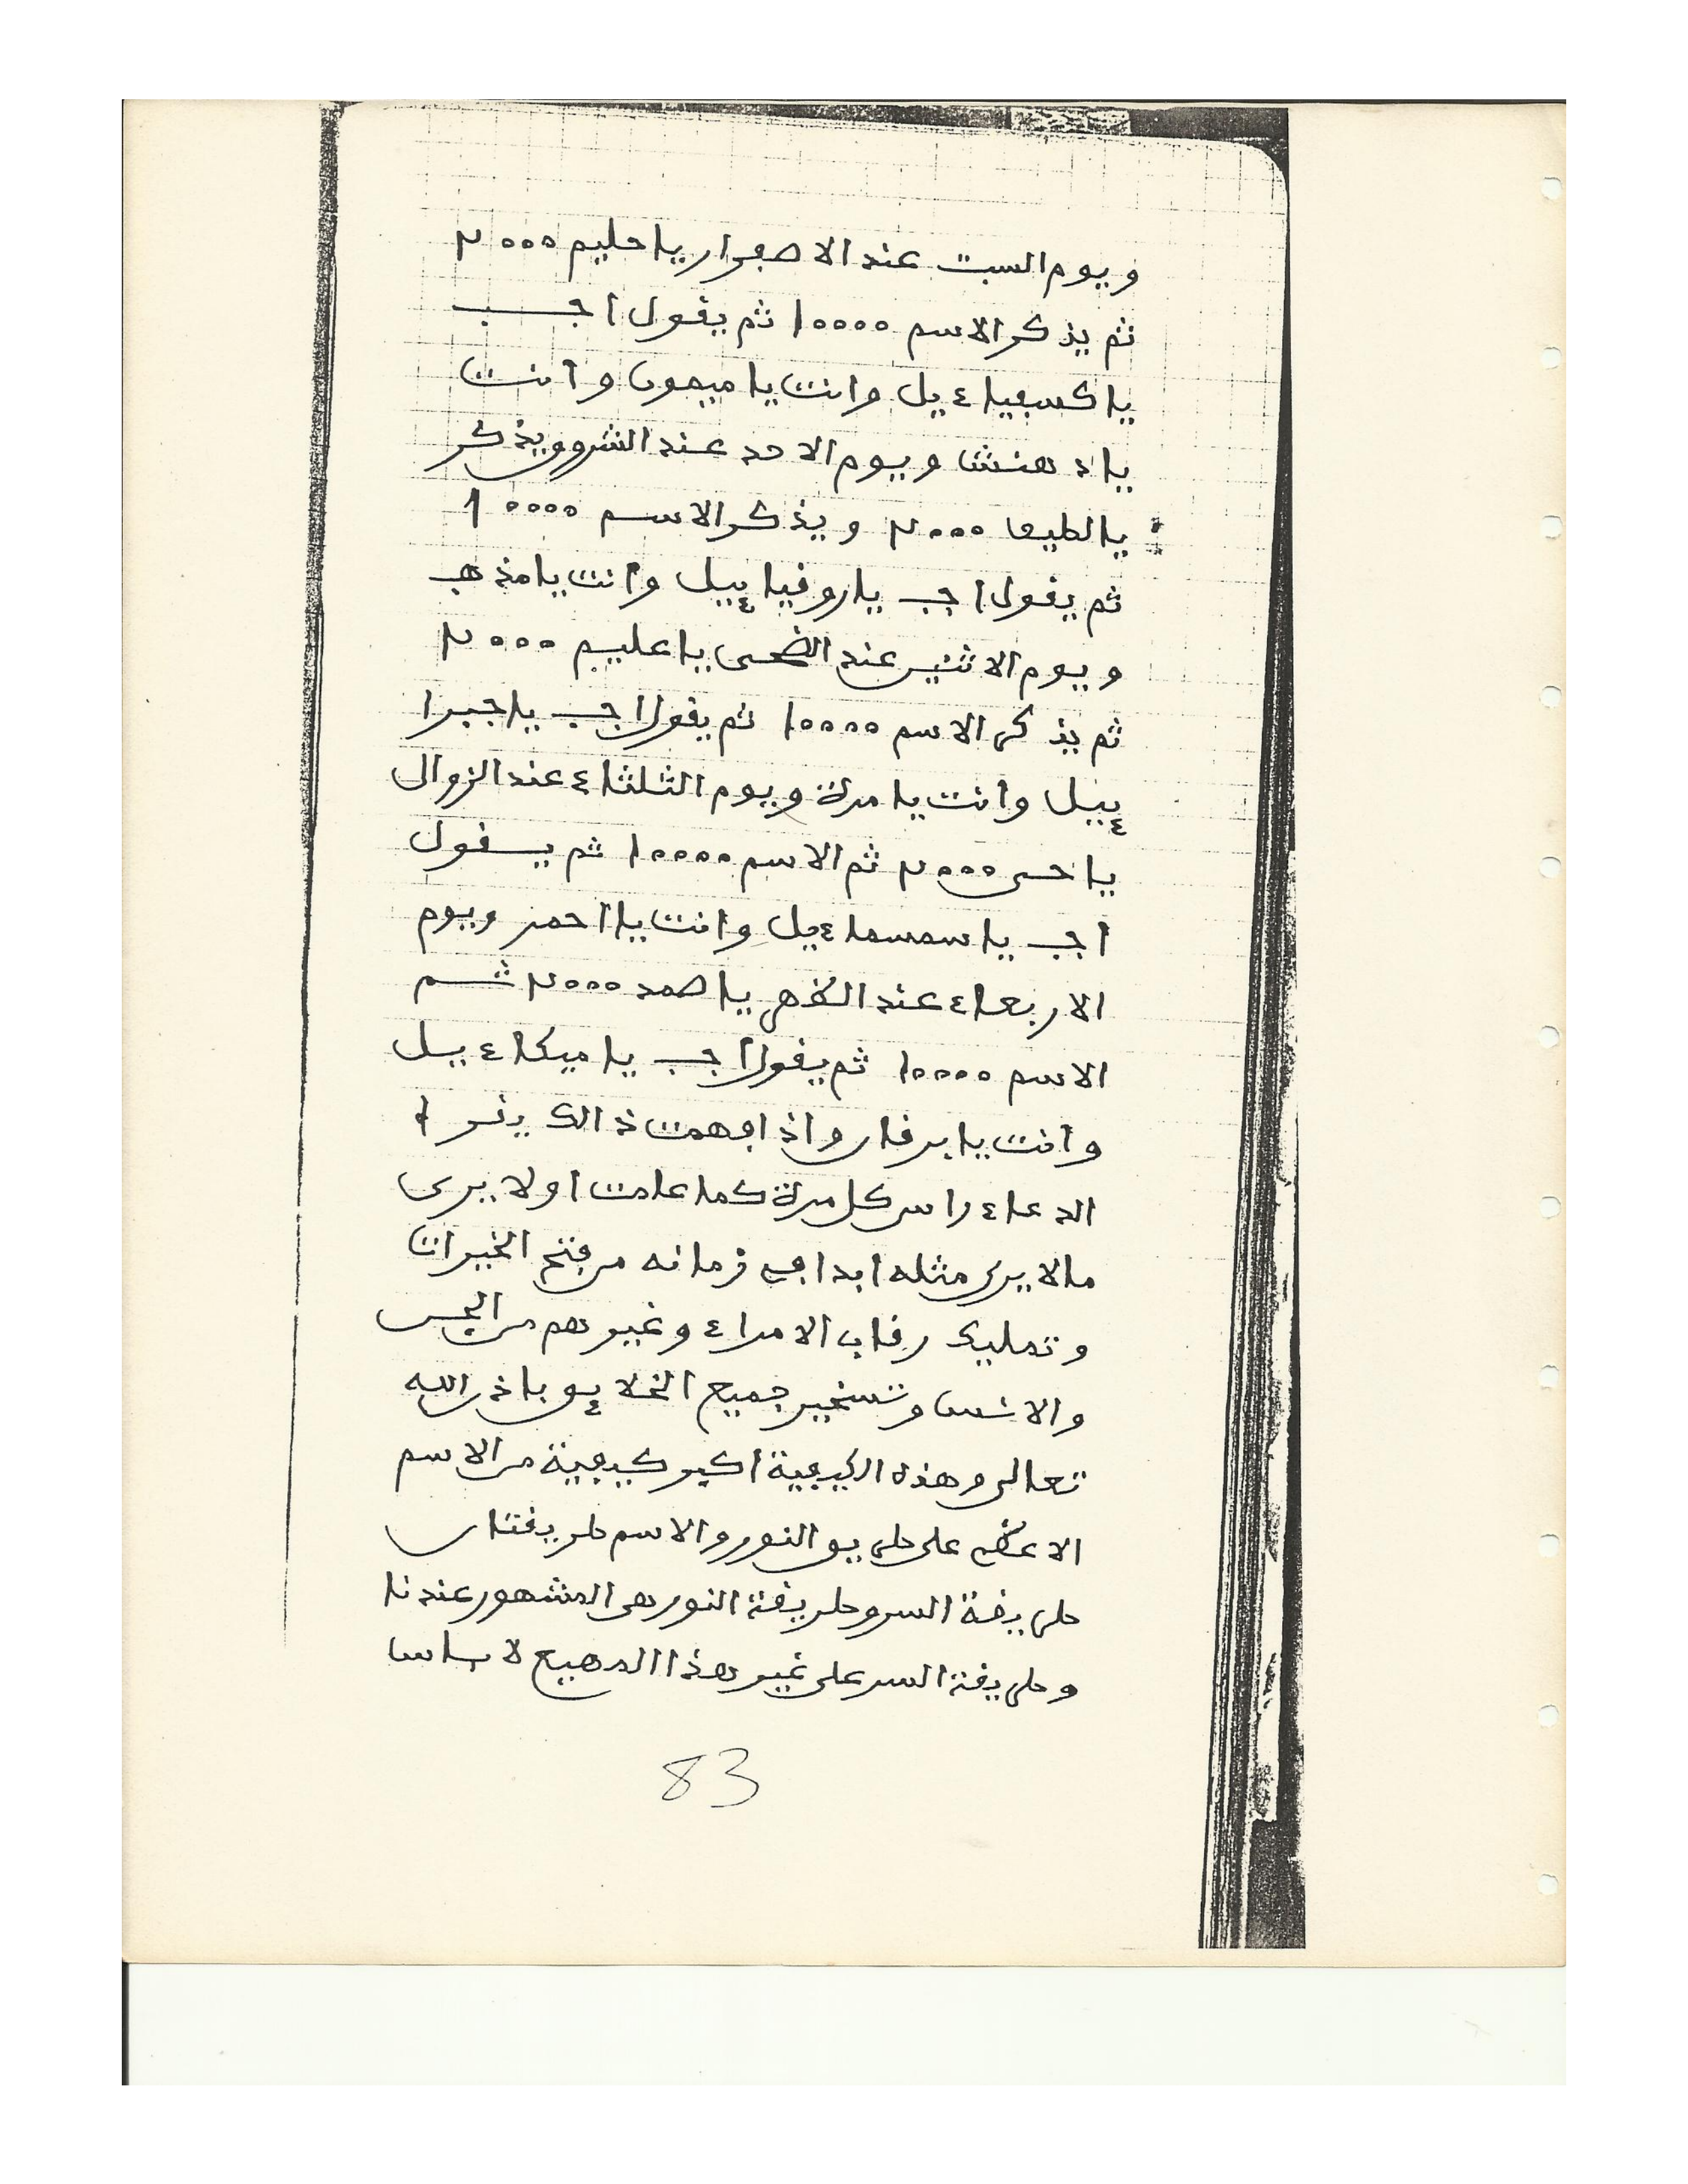 ويوم السبت عند الاصفرار يا حليم ٢٠٠٠
ثم يذكر الاسم ١٠٠٠٠ ثم يقول اجب
يا كسفياءيل وانت يا ميمون وانت
يا دهنش ويوم الاحد عند الشروق يذكر
يا لطيف ٢٠٠٠ ويذكر الاسم ١٠٠٠٠
ثم يقول اجب يا روفياءيل وانت يا مذهب
ويوم الاثنين عند الضحى يا عليم ٢٠٠٠
ثم يذكر الاسم ١٠٠٠٠ ثم يقول اجب يا جبرا
ءيل وانت يا مرة ويوم الثلثاء عند الزوال
يا حي ٢٠٠٠ ثم الاسم ١٠٠٠٠ ثم يقول
اجب يا سمسماءيل وانت يا احمر ويوم
الاربعاء عند الظهر يا صمد ٢٠٠٠ ثم
الاسم ١٠٠٠٠ ثم يقول اجب يا ميكاءيل
وانت يا برقان واذا فهمت ذالك يقرا
الدعاء راس كل مرة كما علمت اولا يرى
ما لا يرى مثله ابدا في زمانه من فتح الخيرات
وتمليك رقاب الامراء وغيرهم من الجن
والانس وتسخير جميع الخلاءق باذن الله
تعالى وهذه الكيفية اكبر كيفية من الاسم
الاعظم على طريق النور والاسم طريقتان
طريقة السر وطريقة النور هي المشهور عندنا
وطريقة السر على غير هذا المهيع لاباس
83